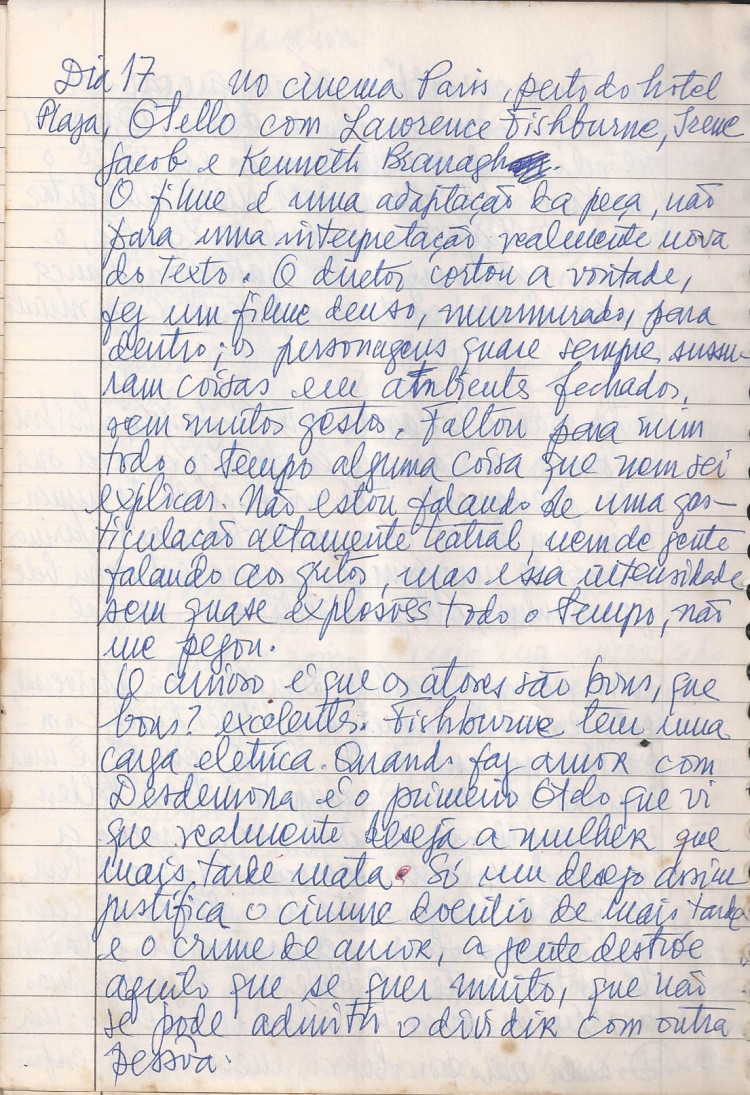 Dia 17 no cinema Paris, perto do hotel
Plaza, Otello com Lawrence Fishburne, Irene
Jacob e Kenneth Branagh.
O filme é uma adaptação da peça, não
para uma interpretação realmente nova
do texto. O diretor cortou a vontade,
fez um filme denso, murmurado, para
dentro; os personagens quase sempre sussu-
ram coisas em ambientes fechados,
sem muitos gestos. Faltou para mim
todo o tempo alguma coisa que nem sei
explicar. Não estou falando de uma ges-
ticulação altamente teatral, nem de gente
falando aos gritos, mas essa intensidade
sem quase explosões todo o tempo, não
me pegou.
O curioso é que os atores são bons, que
bons? excelentes. Fishburne tem uma
carga eletrica. Quando faz amor com
Desdemona é o primeiro Otelo que vi
que realmente deseja a mulher que
mais tarde mata. Só um desejo assim
justifica o ciume doentio de mais tarde
e o crime de amor, a gente destróe
aquilo que se quer muito, que não
se pode admitir o dividir com outra
pessôa.